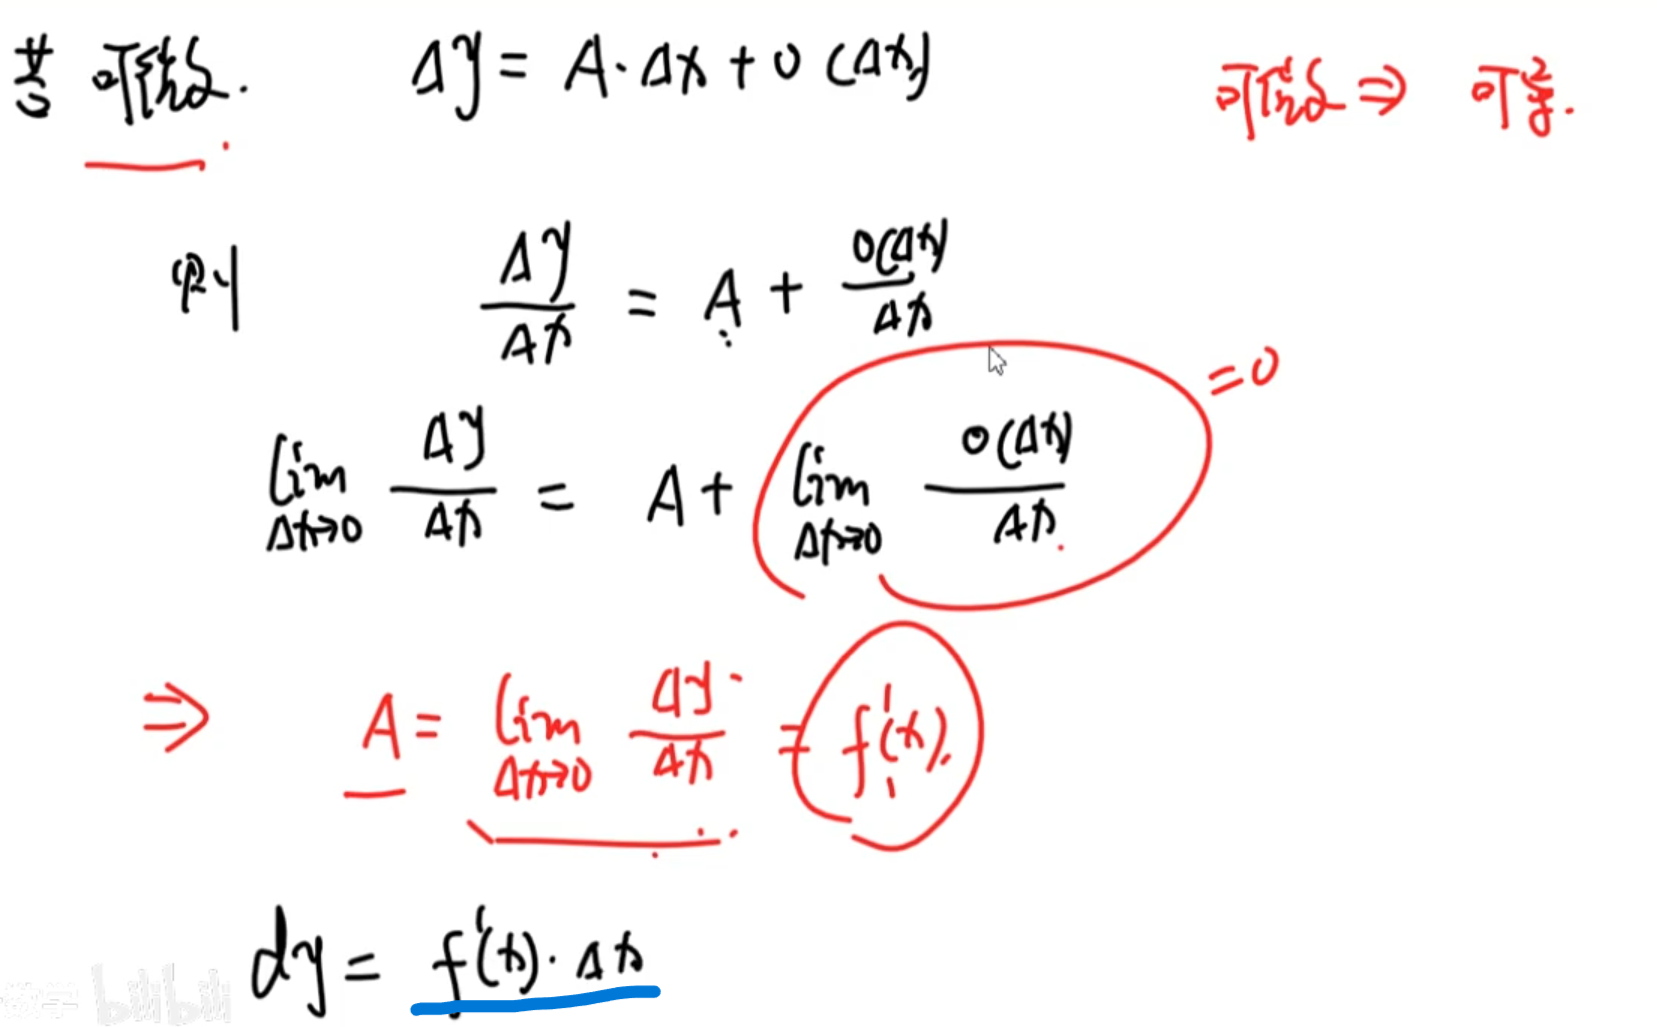 若 可微. Δy = A·Δx + o(Δx) 可微 ⇒ 可导.
则 Δy/Δx = A + o(Δx)/Δx
lim Δx→0 Δy/Δx = A + lim Δx→0 o(Δx)/Δx = 0
⇒ A = lim Δx→0 Δy/Δx = f'(x).
dy = f'(x)·Δx
数学 bilibili